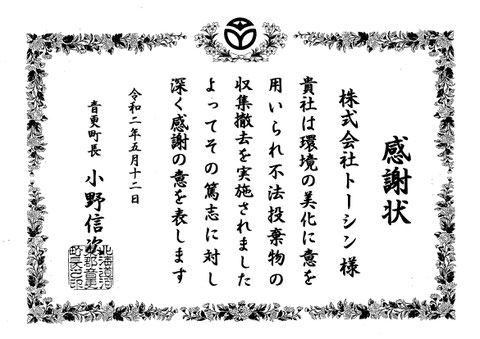 感謝状
株式会社トーシン様
貴社は環境の美化に意を
用いられ不法投棄物の
収集撤去を実施されました
よってその篤志に対し
深く感謝の意を表します
令和二年五月十二日
音更町長 小野信次